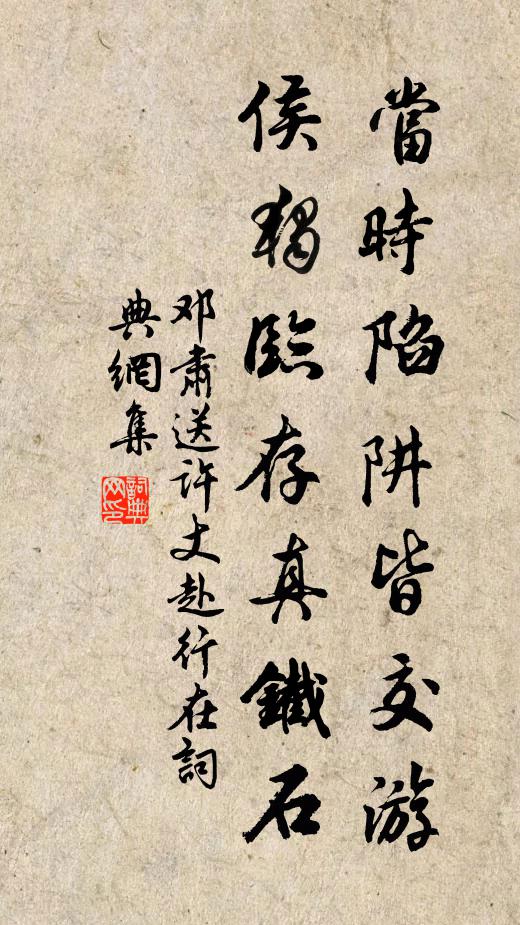 當時陷阱皆交游
侯獨臨存真鐵石
邓肅送许丈赴行在詞
典網集
詞典
网印